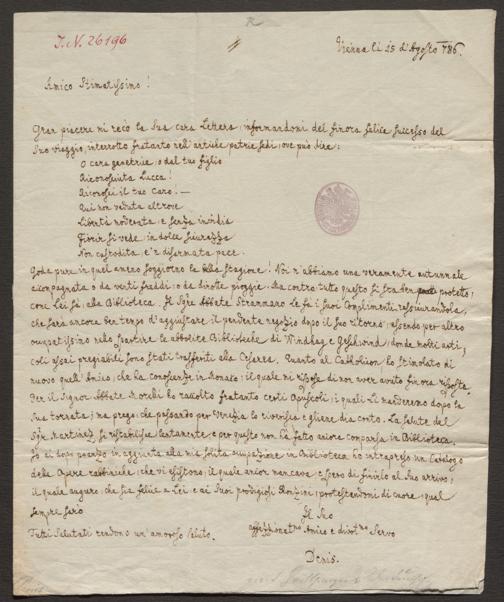 I.N. 26196
Vienna li 25 d'Agosto 786.
Amico Stimatissimo!
Gran piacere mi recò la Sua cara Lettera, informandomi del finora felice successo del
Suo viaggio, interrotto frattanto nell'antiche patrie sedi, ove può dire:
O cara genitrice, o dal tuo figlio
Riconosciuta Lucca!
Riconosci il tuo Caro! —
Qui non veduta altrove
Libertà moderata, e senza invidia
Fiorir si vede, in dolce sicurezza
Non custodita, e'n disarmata pace.
Goda pure in quel ameno soggiorno la bella stagione! Noi n'abbiamo una veramente autunnale
accompagnata o da venti freddi, o da dirotte pioggie. Ma contro tutto questo si sta ben protetto,
come Lei sa, alla Biblioteca. Il Sgre Abbate Strattmann Le fa i suoi Complimenti, assicurandola,
che sarà ancora ben tempo d'aggiustare il pendente negozio dopo il Suo ritorno, essendo per altro
occupatissimo nello spartire le abbolite Biblioteche di Windhag e Gschwind, donde molti arti-
coli assai pregiabili sono stati trasferiti alla Cesarea. Quanto al Catholicon, ho stimolato di
nuovo quell'Amico, che ha conoscenze in Monaco, il quale mi rispose di non aver avuto finora risposta.
Per il Signor Abbate Morelli ho raccolto frattanto certi Opuscoli, i quali Li manderemo dopo la
Sua tornata; ma prego, che passando per Venezia lo riverisca e gliene dia conto. La salute del
Sgr. Martinez si ristabilisce lentamente, e per questo non ha fatto ancora comparsa in Biblioteca.
Io ai dopo pranzo in aggiunta alla mia solita occupazione in Biblioteca ho intrapreso un Catalogo
delle Opere rabbiniche, che vi esistono, il quale ancor mancava, e spero di finirlo al Suo arrivo,
il quale auguro, che sia felice a Lei e ai Suoi, protestandomi di cuore, qual
sempre sarò
Il Suo
Tutti Salutati rendono un'amoroso saluto.
affezionatmo Amico e divotmo Servo
Denis.